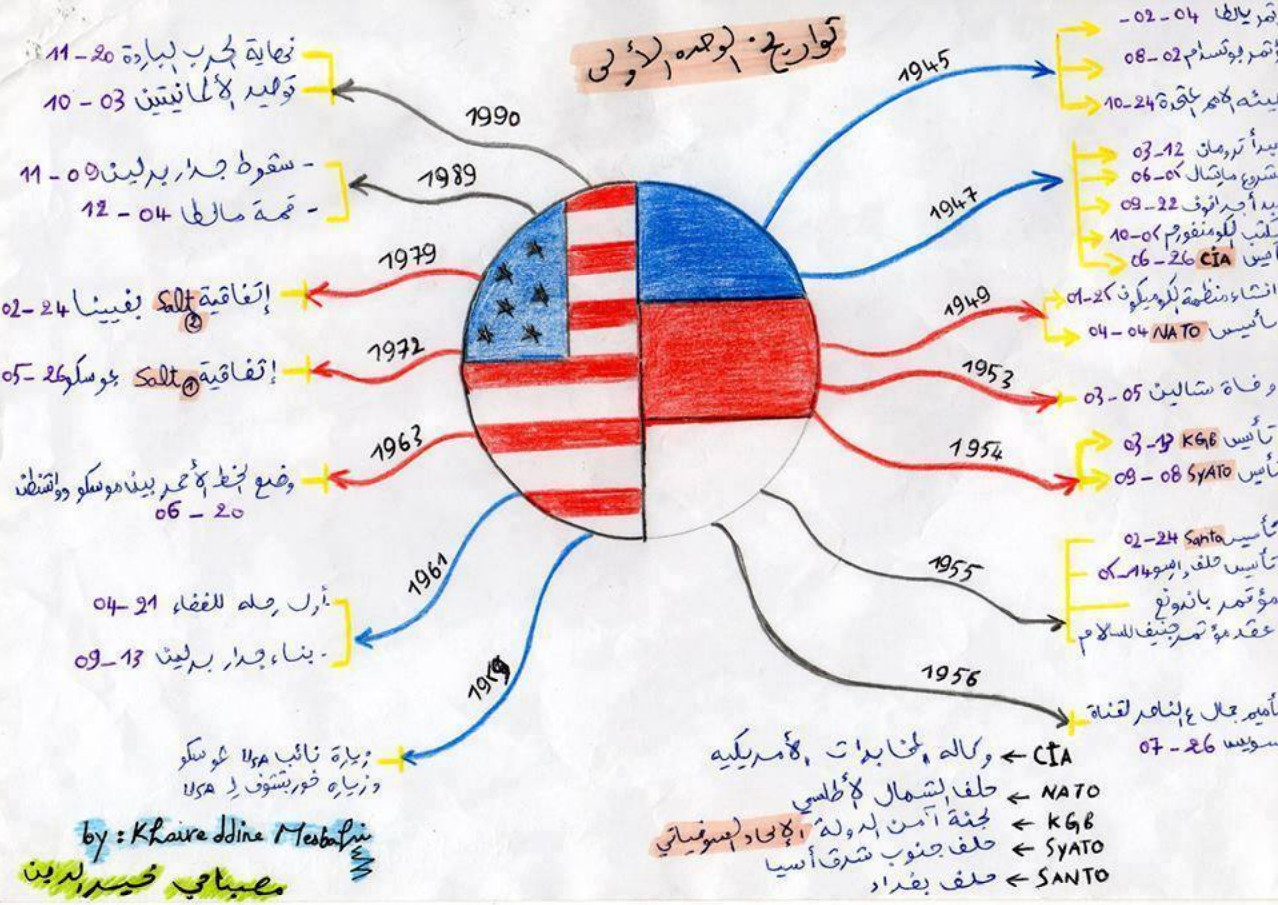 تواريخ الوحدة الأولى
1945
تمر يالطا 04-02-
ؤتمر بوتسدام 02-08
هيئة الأمم المتحدة 24-10
1947
بدأ ترومان 12-03
شروع مارشال 05-06
بدأ جدانوف 22-09
مكتب الكومنفورم 05-10
CIA 26-06
1949
انشاء منظمة الكوميكون 25-01
تأسيس NATO 04-04
1953
وفاة ستالين 05-03
1954
تأسيس KGB 13-03
تأسيس SyATO 08-09
1955
تأسيس Santo 24-02
تأسيس حلف وارسو 14-05
مؤتمر باندونغ
عقد مؤتمر جنيف للسلام
1956
تأميم جمال ع الناصر لقناة
سويس 26-07
1990
نهاية الحرب الباردة 20-11
توحيد الألمانيتين 03-10
1989
- سقوط جدار برلين 09-11
- قمة مالطا 04-12
1979
إتفاقية Salt ② بفيينا 24-02
1972
إتفاقية Salt ① موسكو 26-05
1963
وضع الخط الأحمر بين موسكو وواشنطن
20-06
1961
- أول رحلة للفضاء 21-04
- بناء جدار برلين 13-09
1959
زيارة نائب USA موسكو
وزيارة خوربتشوف ل USA
CIA ← وكالة المخابرات الأمريكية
NATO ← حلف الشمال الأطلسي
KGB ← لجنة آمن الدولة الإتحاد السوفياتي
SyATO ← حلف جنوب شرق أسيا
SANTO ← حلف بغداد
by : Khaireddine Mesbahi
مصباحي خير الدين